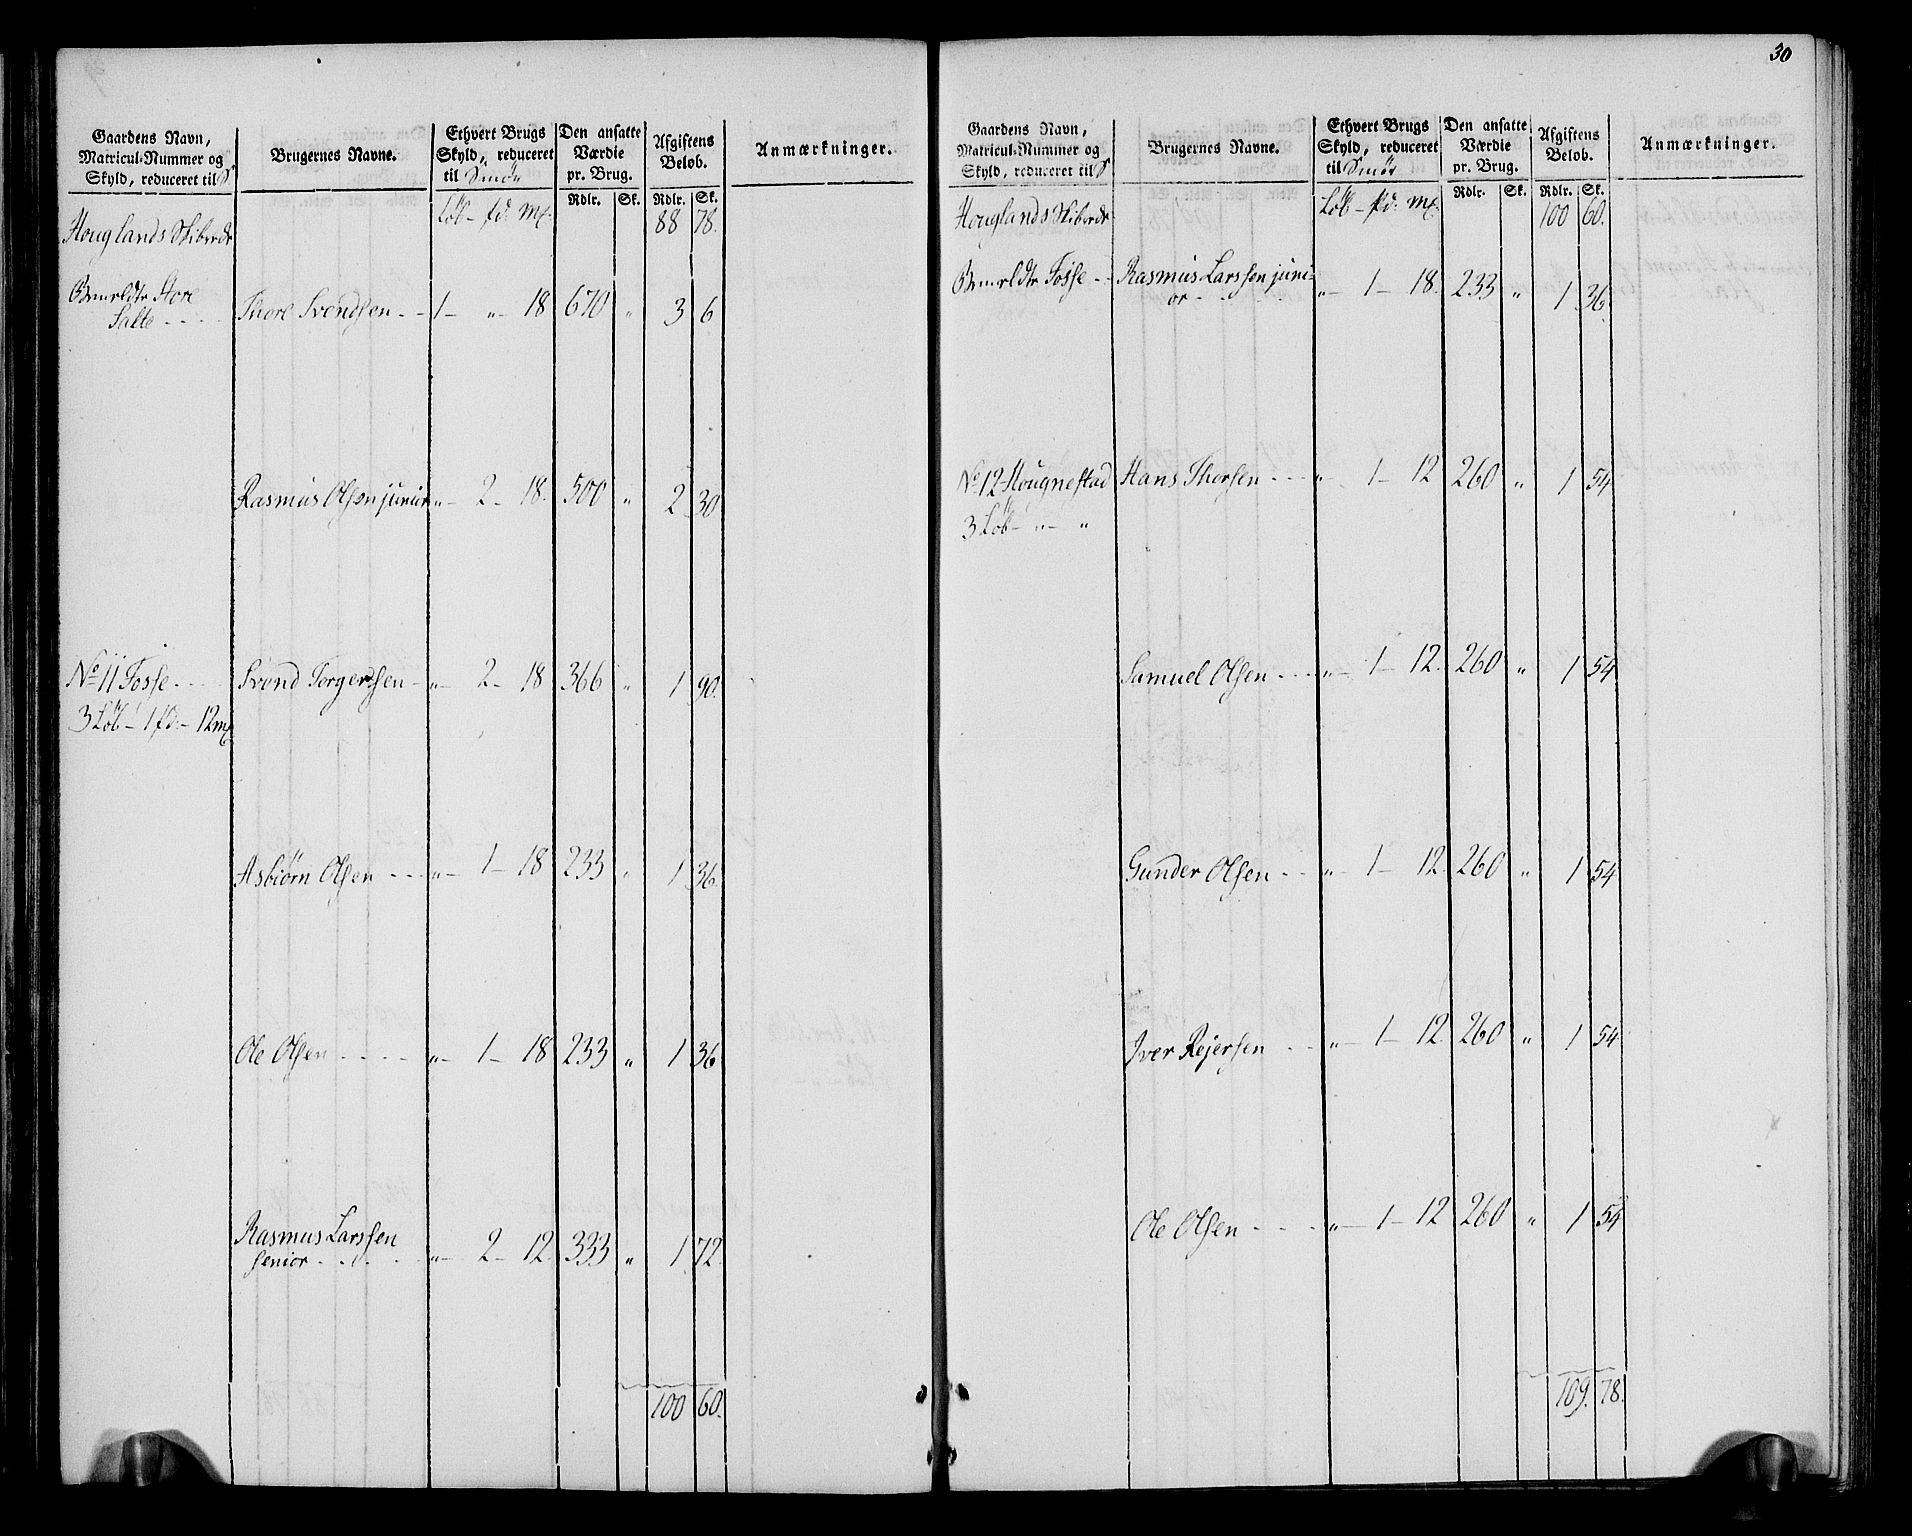 30
Gaardens Navn,
Matricul-Nummer og
Skyld, reduceret til S
Brugernes Navne.
Ethvert Brugs
Skyld, reduceret
til Smör
Den ansatte
Værdie
pr. Brug.
Afgiftens
Beløb.
Anmærkninger.
Rdlr. Sk. Rdlr. Sk.
Löb - pd: mk.
Houglands Skibrede 88 78.
Store
Salte - - - Thore Svendsen - - 1 - " - 18 670 " 3 6
Rasmus Olsen junior " - 2 - 18. 500 " 2 30
No 11 Fosse - - Svend Torgersen - " - 2 - 18 366 " 1 90.
3 Löb - 1 pd: - 12 mk
Asbiørn Olsen - - - " - 1 - 18 233 " 1 36.
Ole Olsen - - - - " - 1 - 18 233 " 1 36
Rasmus Larssen
senior - - - - " - 2 - 12. 333 " 1 72.
100 60.
Gaardens Navn,
Matricul-Nummer og
Skyld, reduceret til S
Brugernes Navne.
Ethvert Brugs
Skyld, reduceret
til Smör
Den ansatte
Værdie
pr. Brug.
Afgiftens
Beløb.
Anmærkninger.
Rdlr. Sk. Rdlr. Sk.
Löb - pd: mk.
Houglands Skibrede 100 60.
Fosse - - Rasmus Larssen juni-
or - - - " - 1 - 18. 233 " 1 36.
No 12 Hougnestad Hans Thorsen - - - " - 1 - 12 260 " 1 54
3 Löb - " - "
Samuel Olsen - - - " - 1 - 12. 260 " 1 54
Gunder Olsen - - " - 1 - 12. 260 " 1 54
Iver Rejersen - - " - 1 - 12. 260 " 1 54
Ole Olsen - - - - " - 1 - 12 260 " 1 54
109. 78.